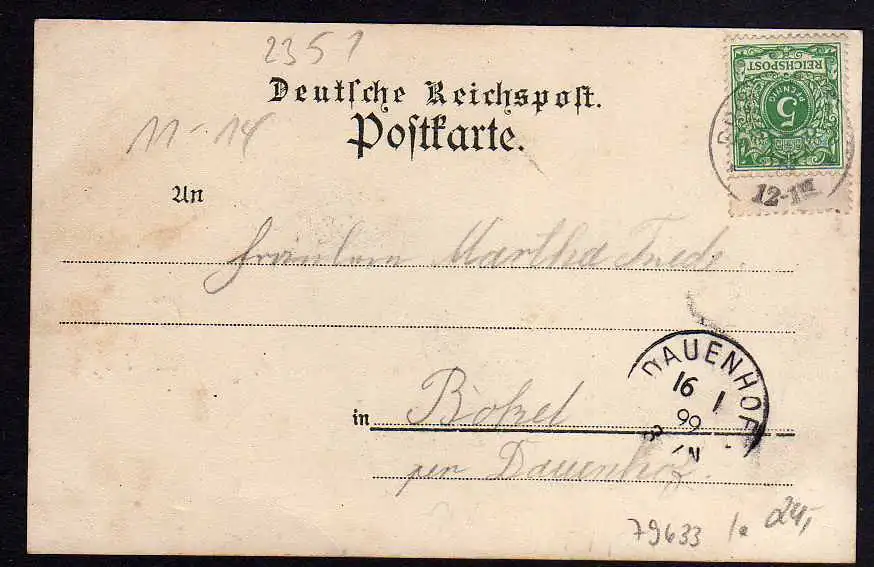 2351
Deutsche Reichspost.
Postkarte.
11-14
REICHSPOST
5
PFENNIG
12-1
An
Fräulein Martha Friede.
DAUENHOF
16 1
99
in Bokel
per Dauenhof.
79633 la 24,-